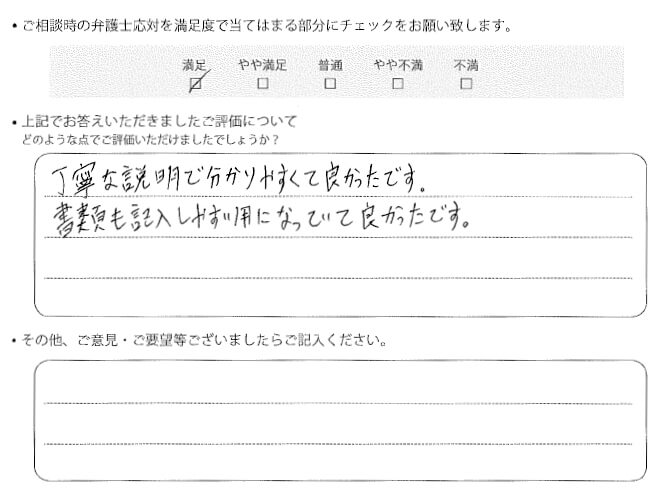 ・ご相談時の弁護士応対を満足度で当てはまる部分にチェックをお願い致します。
満足 やや満足 普通 やや不満 不満
☑ □ □ □ □
・上記でお答えいただきましたご評価について
どのような点でご評価いただけましたでしょうか？
丁寧な説明で分かりやすくて良かったです。
書類も記入しやすい用になっていて良かったです。
・その他、ご意見・ご要望等ございましたらご記入ください。